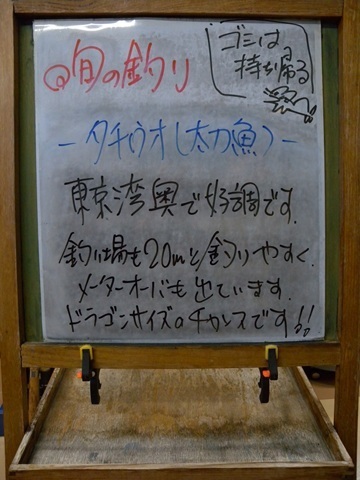 ◎旬の釣り
ゴミは、
持ち帰る
ータチウオ(太刀魚)ー
東京湾奥で好調です。
釣り場も20mと釣りやすく、
メーターオーバーも出ています。
ドラゴンサイズのチャンスです!!